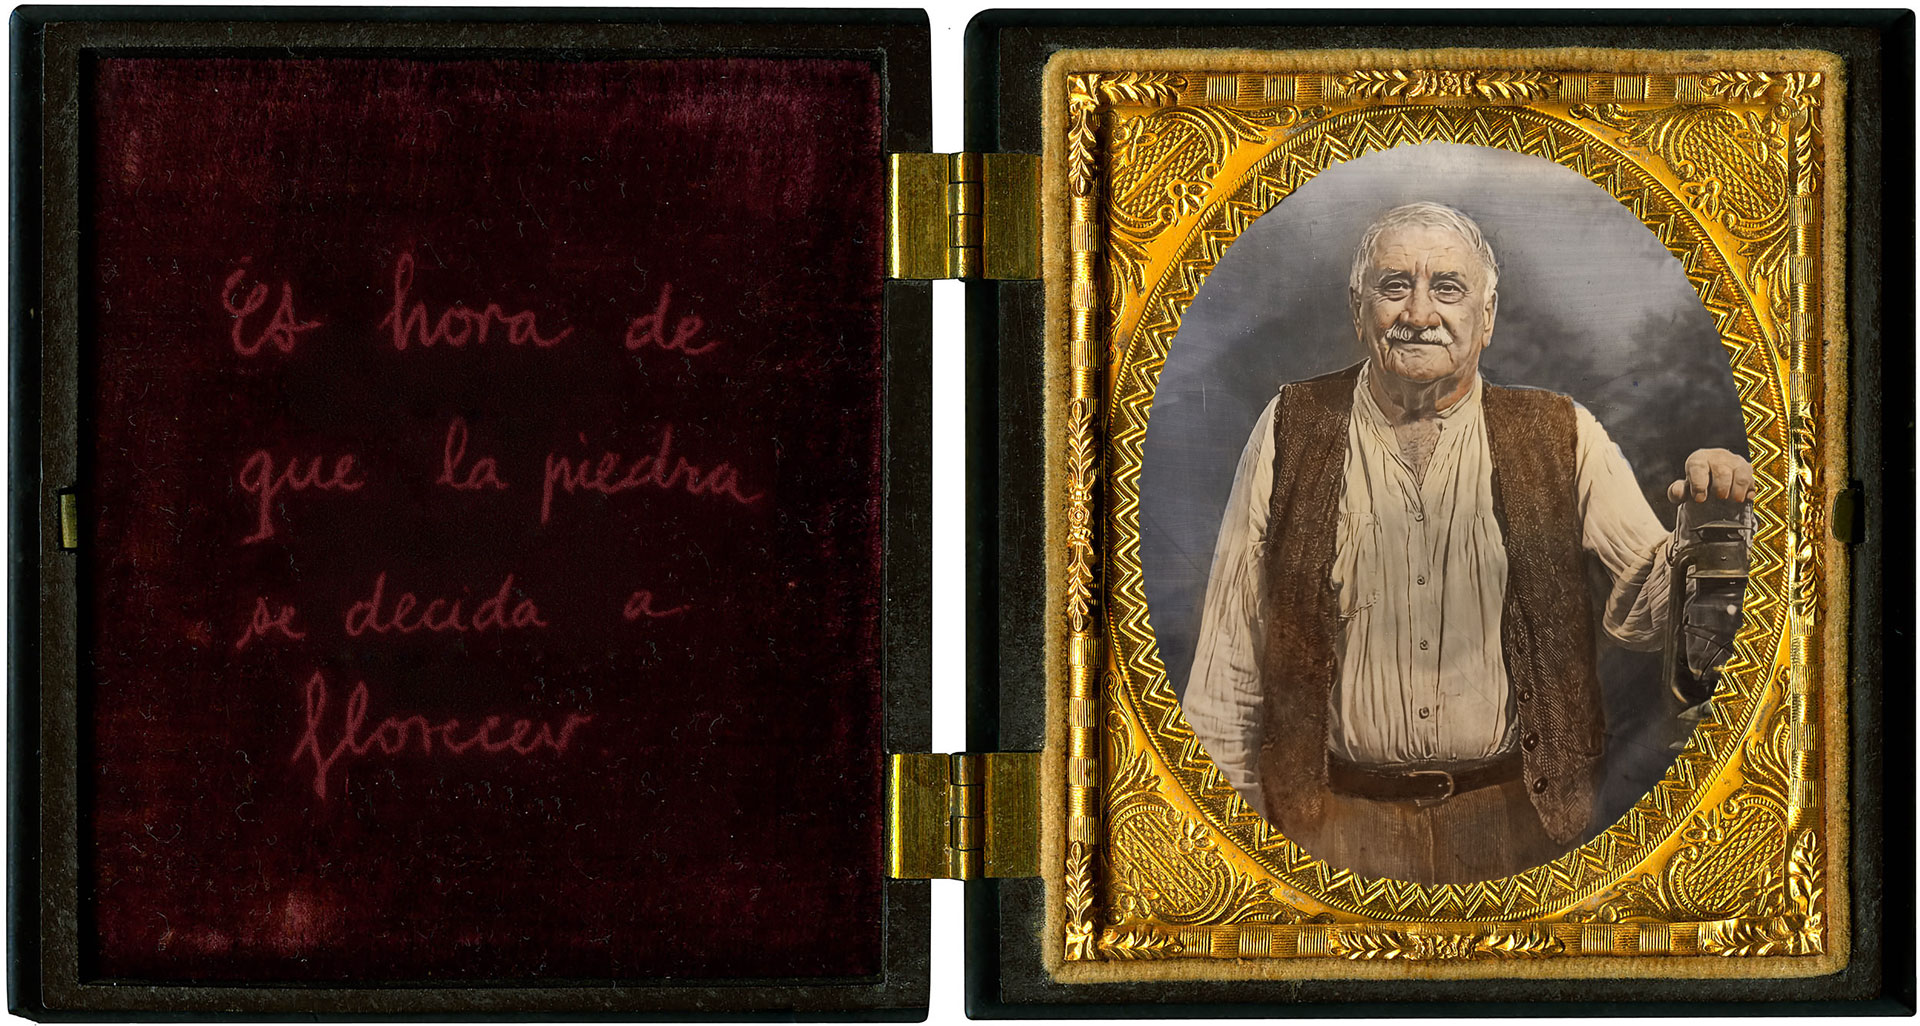 Es hora de
que la piedra
se decida a
florecer